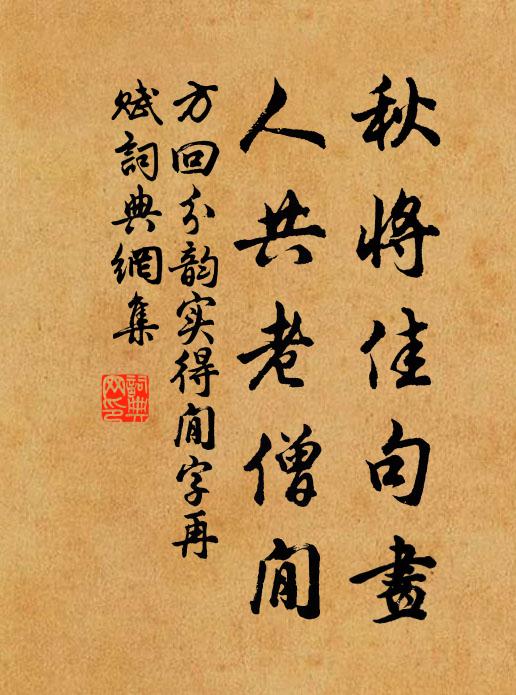 秋將佳句畫
人共老僧閒
方回分韵实得閒字再
賦詞典網集
詞典网印